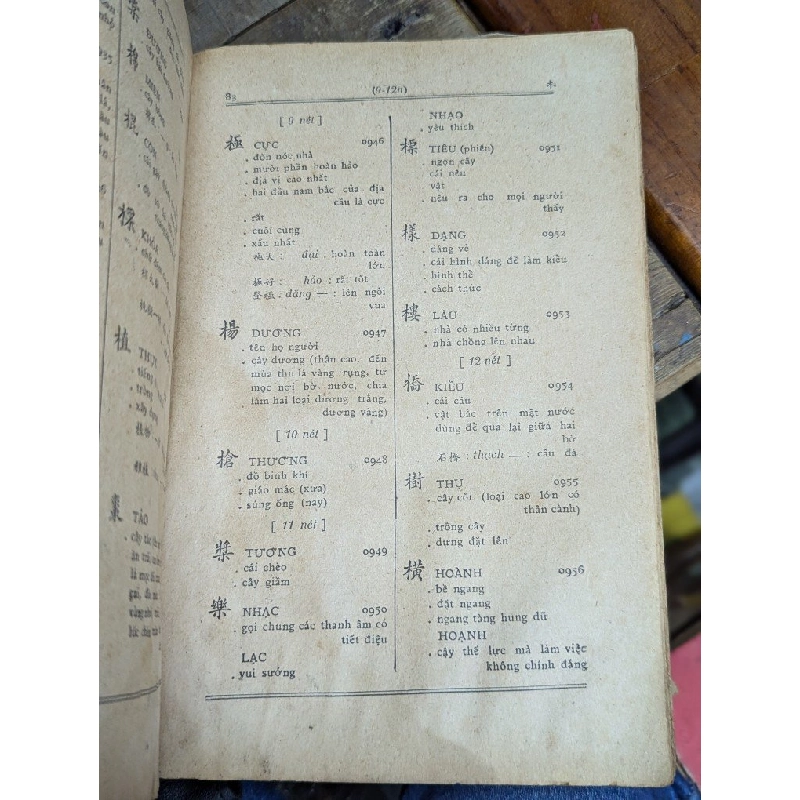 88
(9-12n)
[ 9 nét ]
極 CỰC 0946
. đòn nóc nhà
. mười phần hoàn hảo
. địa vị cao nhất
. hai đầu nam bắc của địa
cầu là cực
. rất
. cuối cùng
. xấu nhất
極大 : đại : hoàn toàn
lớn
極好 : hảo : rất tốt
登極 : đăng — : lên ngôi
vua
楊 DƯƠNG 0947
. tên họ người
. cây dương (thân cao, đến
mùa thu lá vàng rụng, tư
mọc nơi bờ nước, chia
làm hai loại dương trắng,
dương vàng)
[ 10 nét ]
槍 THƯƠNG 0948
. đồ binh khí
. giáo mác (xưa)
. súng ống (nay)
[ 11 nét ]
槳 TƯƠNG 0949
. cái chèo
. cây giầm
樂 NHẠC 0950
. gọi chung các thanh âm có
tiết điệu
LẠC
. vui sướng
NHẠO
. yêu thích
標 TIÊU (phiên) 0951
. ngọn cây
. cái nêu
. vật
. nêu ra cho mọi người
thấy
樣 DẠNG 0952
. dáng vẻ
. cái hình dáng để làm kiểu
. hình thể
. cách thức
樓 LẦU 0953
. nhà có nhiều từng
. nhà chồng lên nhau
[ 12 nét ]
橋 KIỀU 0954
. cái cầu
. vật bắc trên mặt nước
dùng để qua lại giữa hai
bờ
石橋 : thạch — : cầu đá
樹 THỤ 0955
. cây cối (loại cao lớn có
thân cành)
. trồng cây
. dựng đặt lên
橫 HOÀNH 0956
. bề ngang
. đặt ngang
. ngang tàng hung dữ
HOẠNH
. cậy thế lực mà làm việc
không chính đáng
植 THỰC
TÁO